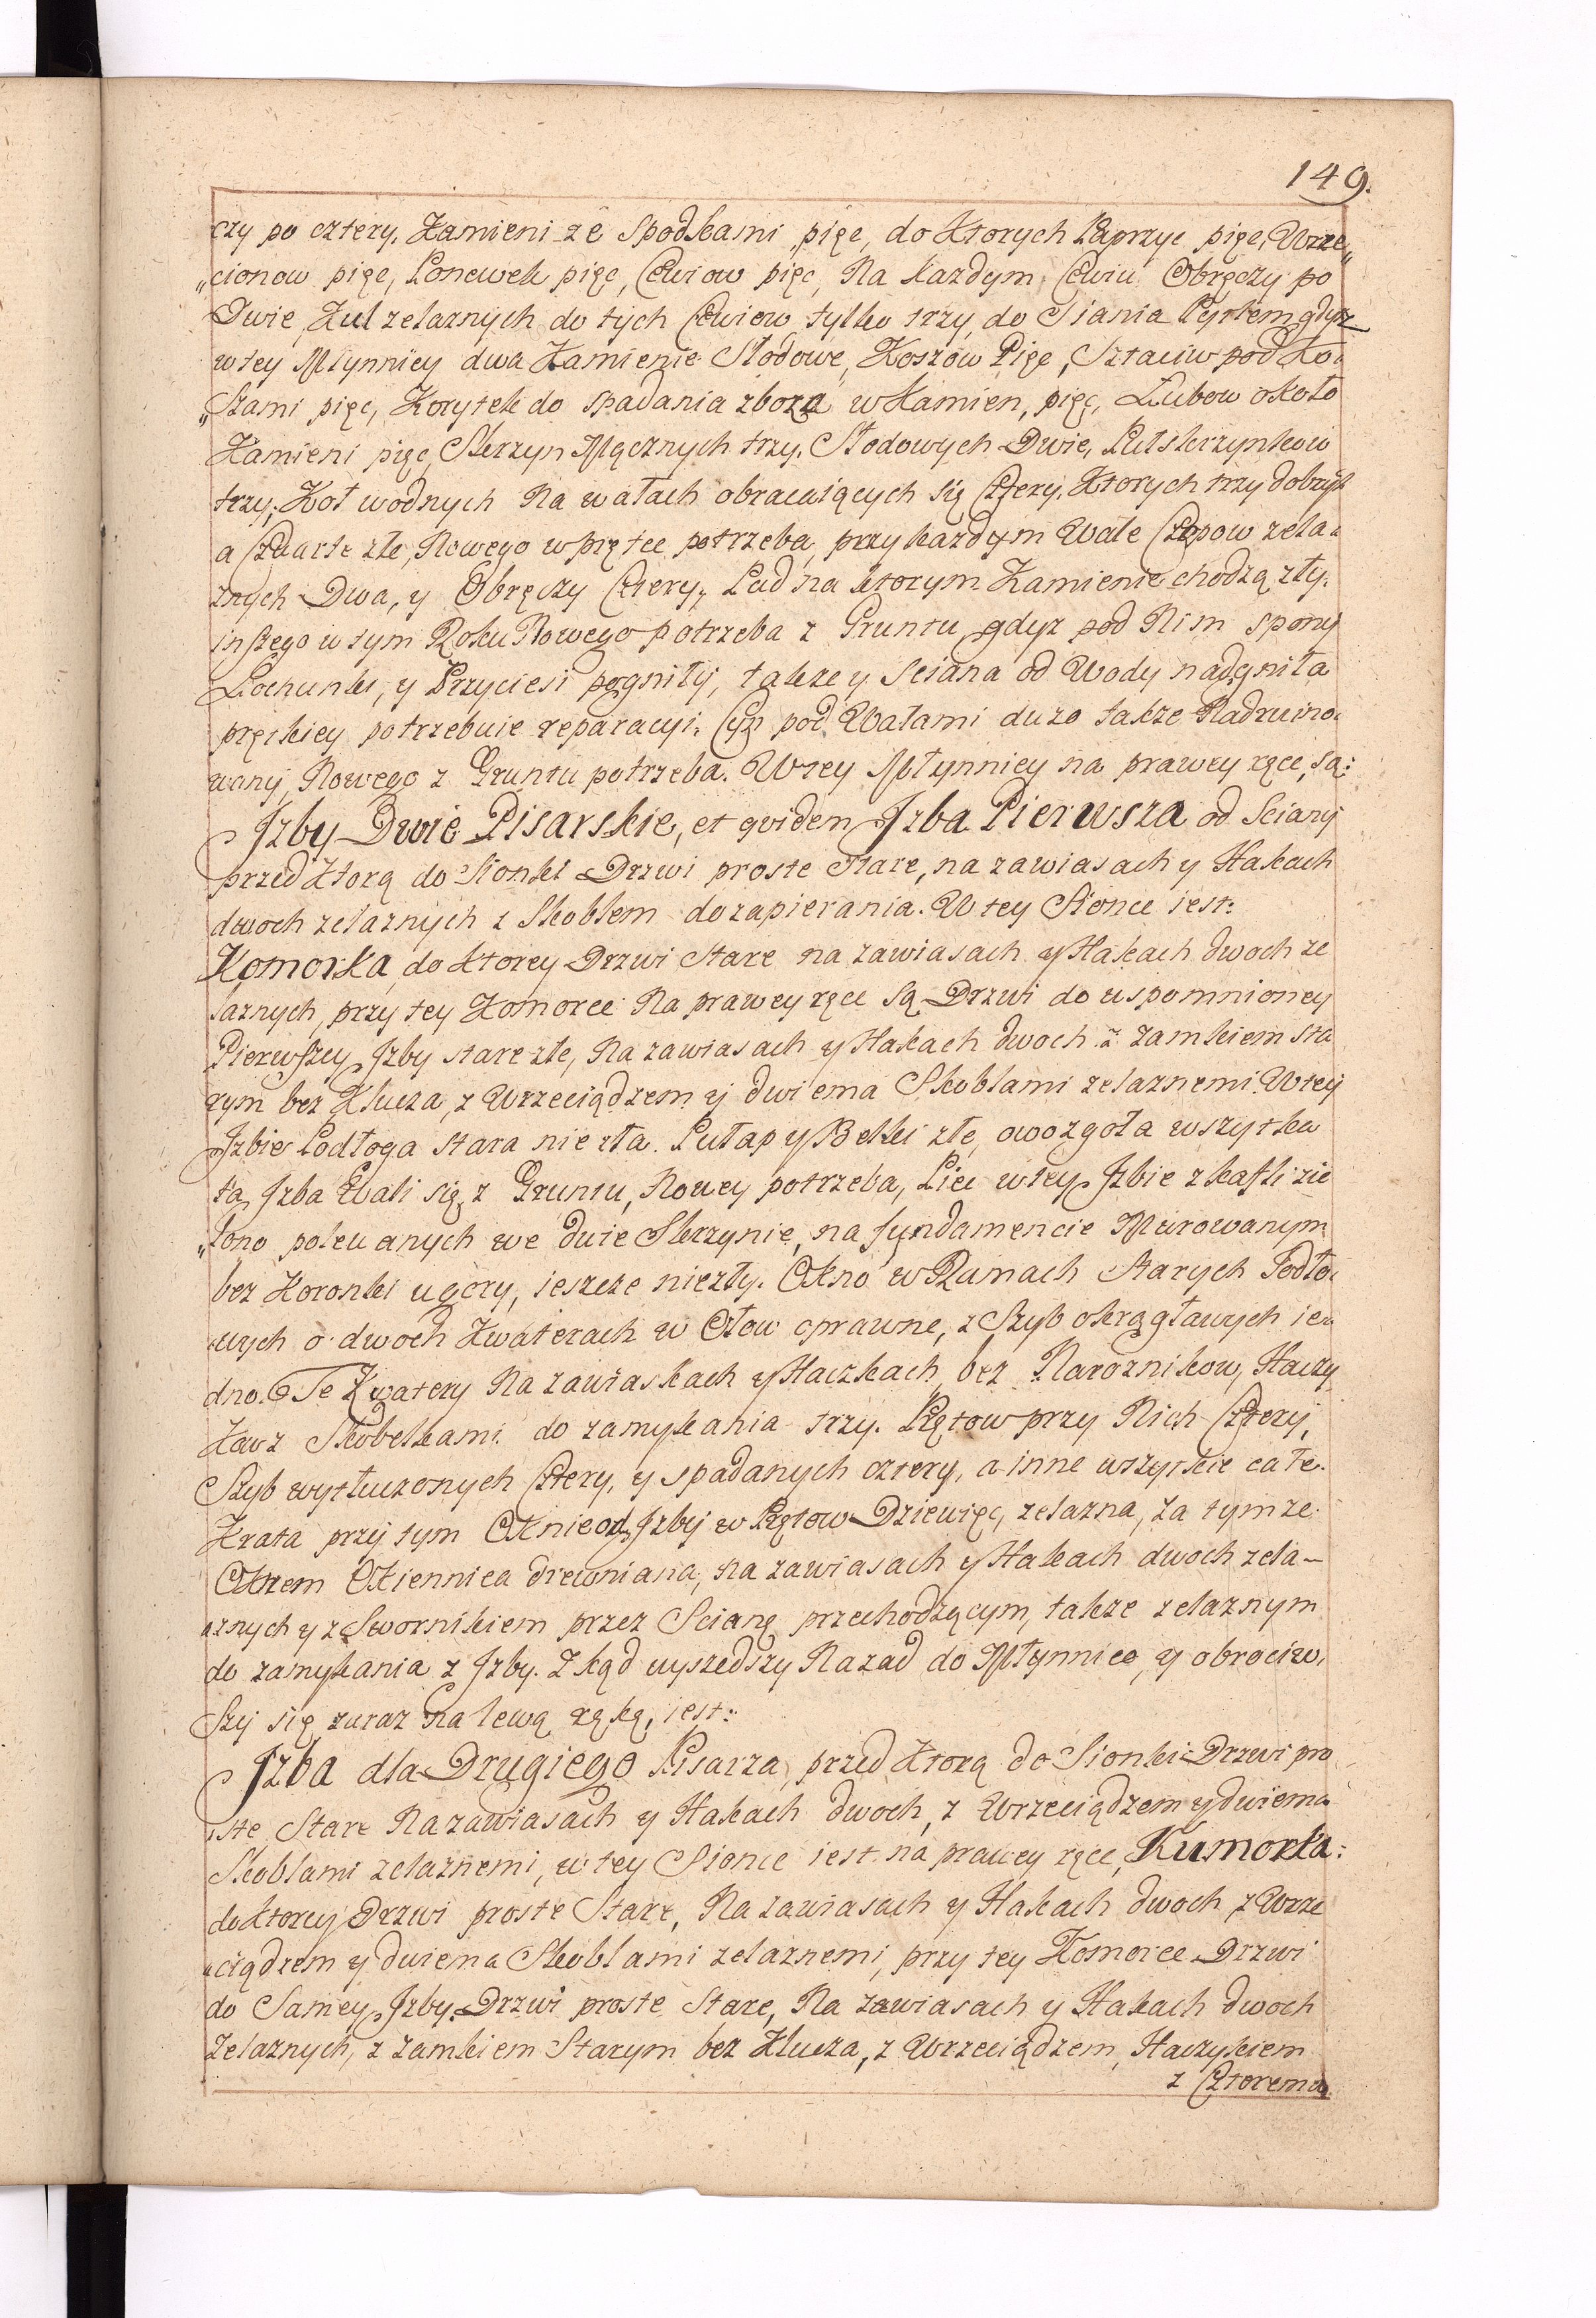 149.
czy po cztery. Kamieni ze Spodkami pięć, do Ktorych Paprzyc pięć, Wrze„
„cionow pięć, Konewek pięć, Cewiow pięć, Na każdym Cewiu Obręczy po
Dwie, Kul zelaznych do tych Cewiow tylko trzy, do Siania Pytlem gdyz
w tey Młynnicy dwa Kamienie Słodowe, Koszow Pięć, Sztaciw pod Ko„
„Szami pięć, Korytek do spadania zboza w Kamien, pięć, Lubow około
Kamieni pięć, Skrzyn Mącznych trzy, Słodowych Dwie, Pułskrzynkow
trzy, Koł wodnych Na wałach obracaiących się Cztery, Ktorych trzy dobrych
a Czwarte złe, Nowego w prętce potrzeba, przy kazdym Wale Czopow zela„
znych Dwa, y Obręczy Cztery, Ląd na ktorym Kamienie chodzą zły.
inszego w tym Roku Nowego potrzeba z Gruntu, gdyz pod Nim spony
Kochunki, y Przyciesi pogniły, takze y Sciana od Wody nadgniła
prętkiey potrzebuie reparacyi. Cyp pod Wałami duzo takze Nadruino„
wany, Nowego z Gruntu potrzeba. W tey Młynnicy na prawey ręce, są:
Jzby Dwie Pisarskie, et qvidem Jzba Pierwsza od Sciany
przed Ktorą do Sionki Drzwi proste Stare, na zawiasach y Hakach
dwoch zelaznych z Skoblem do zapierania. W tey Sionce iest:
Komorka, do Ktorey Drzwi Stare na zawiasach y Hakach dwoch ze
laznych, przy tey Komorce Na prawey ręce Są Drzwi do wspomnioney
Pierwszey Jzby stare złe, na zawiasach y Hakach dwoch z zamkiem sta
rym bez Klucza, z Wrzeciądzem y dwiema Skoblami zelaznemi. W tey
Jzbie Podłoga stara nie zła. Pułap y Belki złe, owozgoła wszytka
ta Jzba Wali się, z Gruntu, Nowey potrzeba, Piec w tey Jzbie z kafli zie
„lono polewanych we dwie Skrzynie, na fundamencie Murowanym
bez Koronki u gory, ieszcze niezły. Okno w Ramach Starych Jodło„
„wych o dwoch Kwaterach w Ołow oprawne, z Szyb okrągławych ie„
dno. Te Kwatery Na zawiaskach y Haczkach, bez Naroznikow, Haczy
Kow z Skobelkami do zamykania trzy. Prętow przy Nich Cztery,
Szyb wytłuczonych Cztery, y spadanych cztery, a inne wszytkie całe.
Krata przy tym Oknie od Jzby w Prętow Dziewięć, zelazna, za tymze
Oknem Okiennica drewniana, na zawiasach y Hakach dwoch zela–
znych y z Swornikiem przez Scianę przechodzącym, takze zelaznym
do zamykania z Jzby. Zkąd wyszedszy Nazad do Młynnice, y obrociw„
Szy się zaraz na lewą ręką, iest:
Jzba dla Drugiego Pisarza, przed Ktorą do Sionki Drzwi pro
„ste Stare Na zawiasach y Hakach dwoch, z Wrzeciądzem y dwiema
Skoblami zelaznemi, w tey Sionce iest na prawey ręce, Kumorka:
do Ktorey Drzwi proste Stare, Na zawiasach y Hakach dwoch z Wrze
„ciądzem y dwiema Skoblami zelaznemi, przy tey Komorce Drzwi
do Samey Jzby. Drzwi proste Stare, Na zawiasach y Hakach dwoch
Zelaznych, z zamkiem Starym bez Klucza, z Wrzeciądzem, Haczykiem
z Cztorema